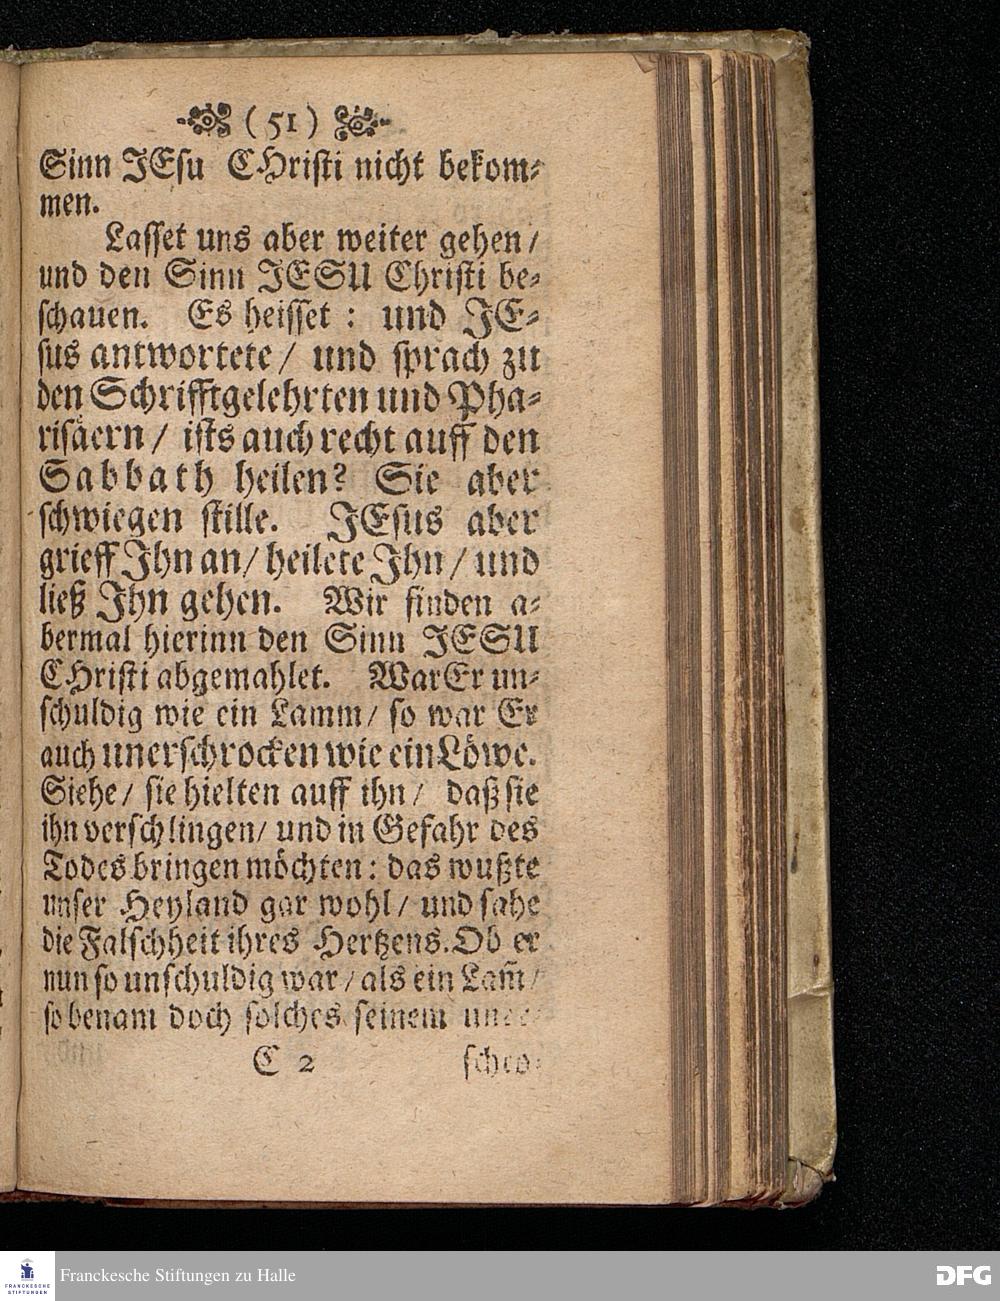 (51)
Sinn JEsu CHristi nicht bekom⸗
men.
Lasset uns aber weiter gehen/
und den Sinn JESU Christi be⸗
schauen. Es heisset : und JE⸗
sus antwortete/ und sprach zu
den Schrifftgelehrten und Pha⸗
risäern/ ists auch recht auff den
Sabbath heilen? Sie aber
schwiegen stille. JEsus aber
grieff Jhn an/ heilete Jhn/ und
ließ Jhn gehen. Wir finden a⸗
bermal hierinn den Sinn JESU
CHristi abgemahlet. War Er un⸗
schuldig wie ein Lamm/ so war Er
auch unerschrocken wie ein Löwe.
Siehe/ sie hielten auff ihn/ daß sie
ihn verschlingen/ und in Gefahr des
Todes bringen möchten: das wußte
unser Heyland gar wohl/ und sahe
die Falschheit ihres Hertzens. Ob er
nun so unschuldig war/ als ein Lam̃/
so benam doch solches seinem
C 2 schro⸗
Franckesche Stiftungen zu Halle
FRANCKESCHE
STIFTUNGEN
DFG